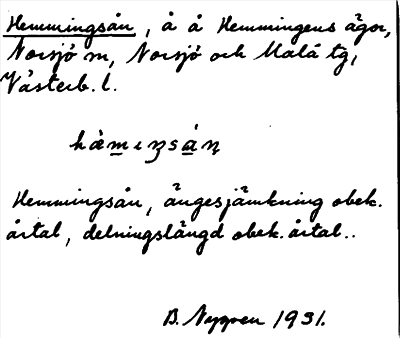 Hemmingsån, å å Hemmingens ägor,
Norsjö sn, Norsjö och Malå tg,
Västerb. l.
hämıŋsån
Hemmingsån, ängesjämkning obek.
årtal, delningslängd obek. årtal..
B. Nygren 1931.